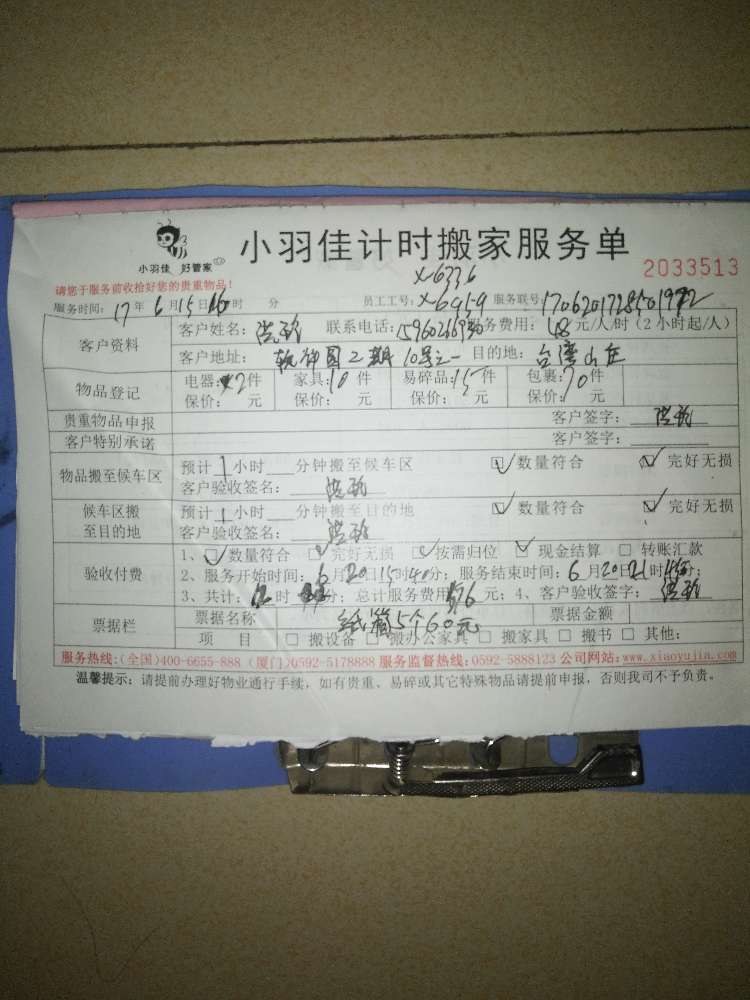 小羽佳 好管家
小羽佳计时搬家服务单
2033513
请您于服务前收检好您的贵重物品!
X-6336
服务时间: 17年6月15日 时 分 员工工号: X-6959 服务联号:
客户资料
客户姓名: 联系电话: 服务费用: 48元/人/时(2小时起/人)
客户地址: 软件园2期 10号之一 目的地: 台湾山庄
物品登记
电器: 2件 家具: 10件 易碎品: 15件 包裹: 70件
保价: 元 保价: 元 保价: 元 保价: 元
贵重物品申报 客户签字:
客户特别承诺 客户签字:
物品搬至候车区
预计1小时 分钟搬至候车区 ☑数量符合 ☑完好无损
客户验收签名:
候车区搬至目的地
预计1小时 分钟搬至目的地 ☑数量符合 ☑完好无损
客户验收签名:
验收付费
1、☑数量符合 ☑完好无损 ☑按需归位 ☑现金结算 □转账汇款
2、服务开始时间: 6月20日15时40分; 服务结束时间: 6月20日21时 分;
3、共计: 时 分; 总计服务费用: 576元; 4、客户验收签字:
票据栏
票据名称 纸箱5个60元 票据金额
项 目 □搬设备 □搬办公家具 □搬家具 □搬书 □其他:
服务热线:(全国)400-6655-888 (厦门)0592-5178888 服务监督热线:0592-5888123 公司网站:www.xiaoyujia.com
温馨提示: 请提前办理好物业通行手续, 如有贵重、易碎或其它特殊物品请提前申报, 否则我司不予负责。